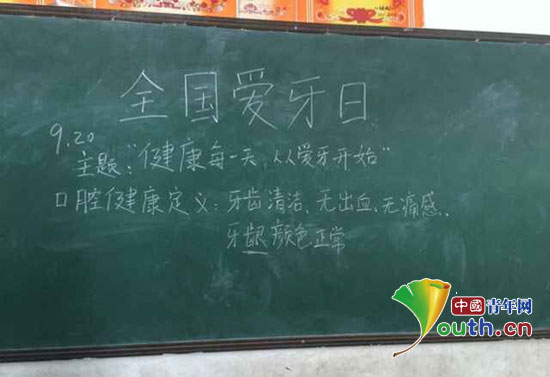 全国爱牙日
9.20
主题："健康每一天，从爱牙开始"
口腔健康定义：牙齿清洁、无出血、无痛感、
牙龈颜色正常
中國青年网
Youth.cn